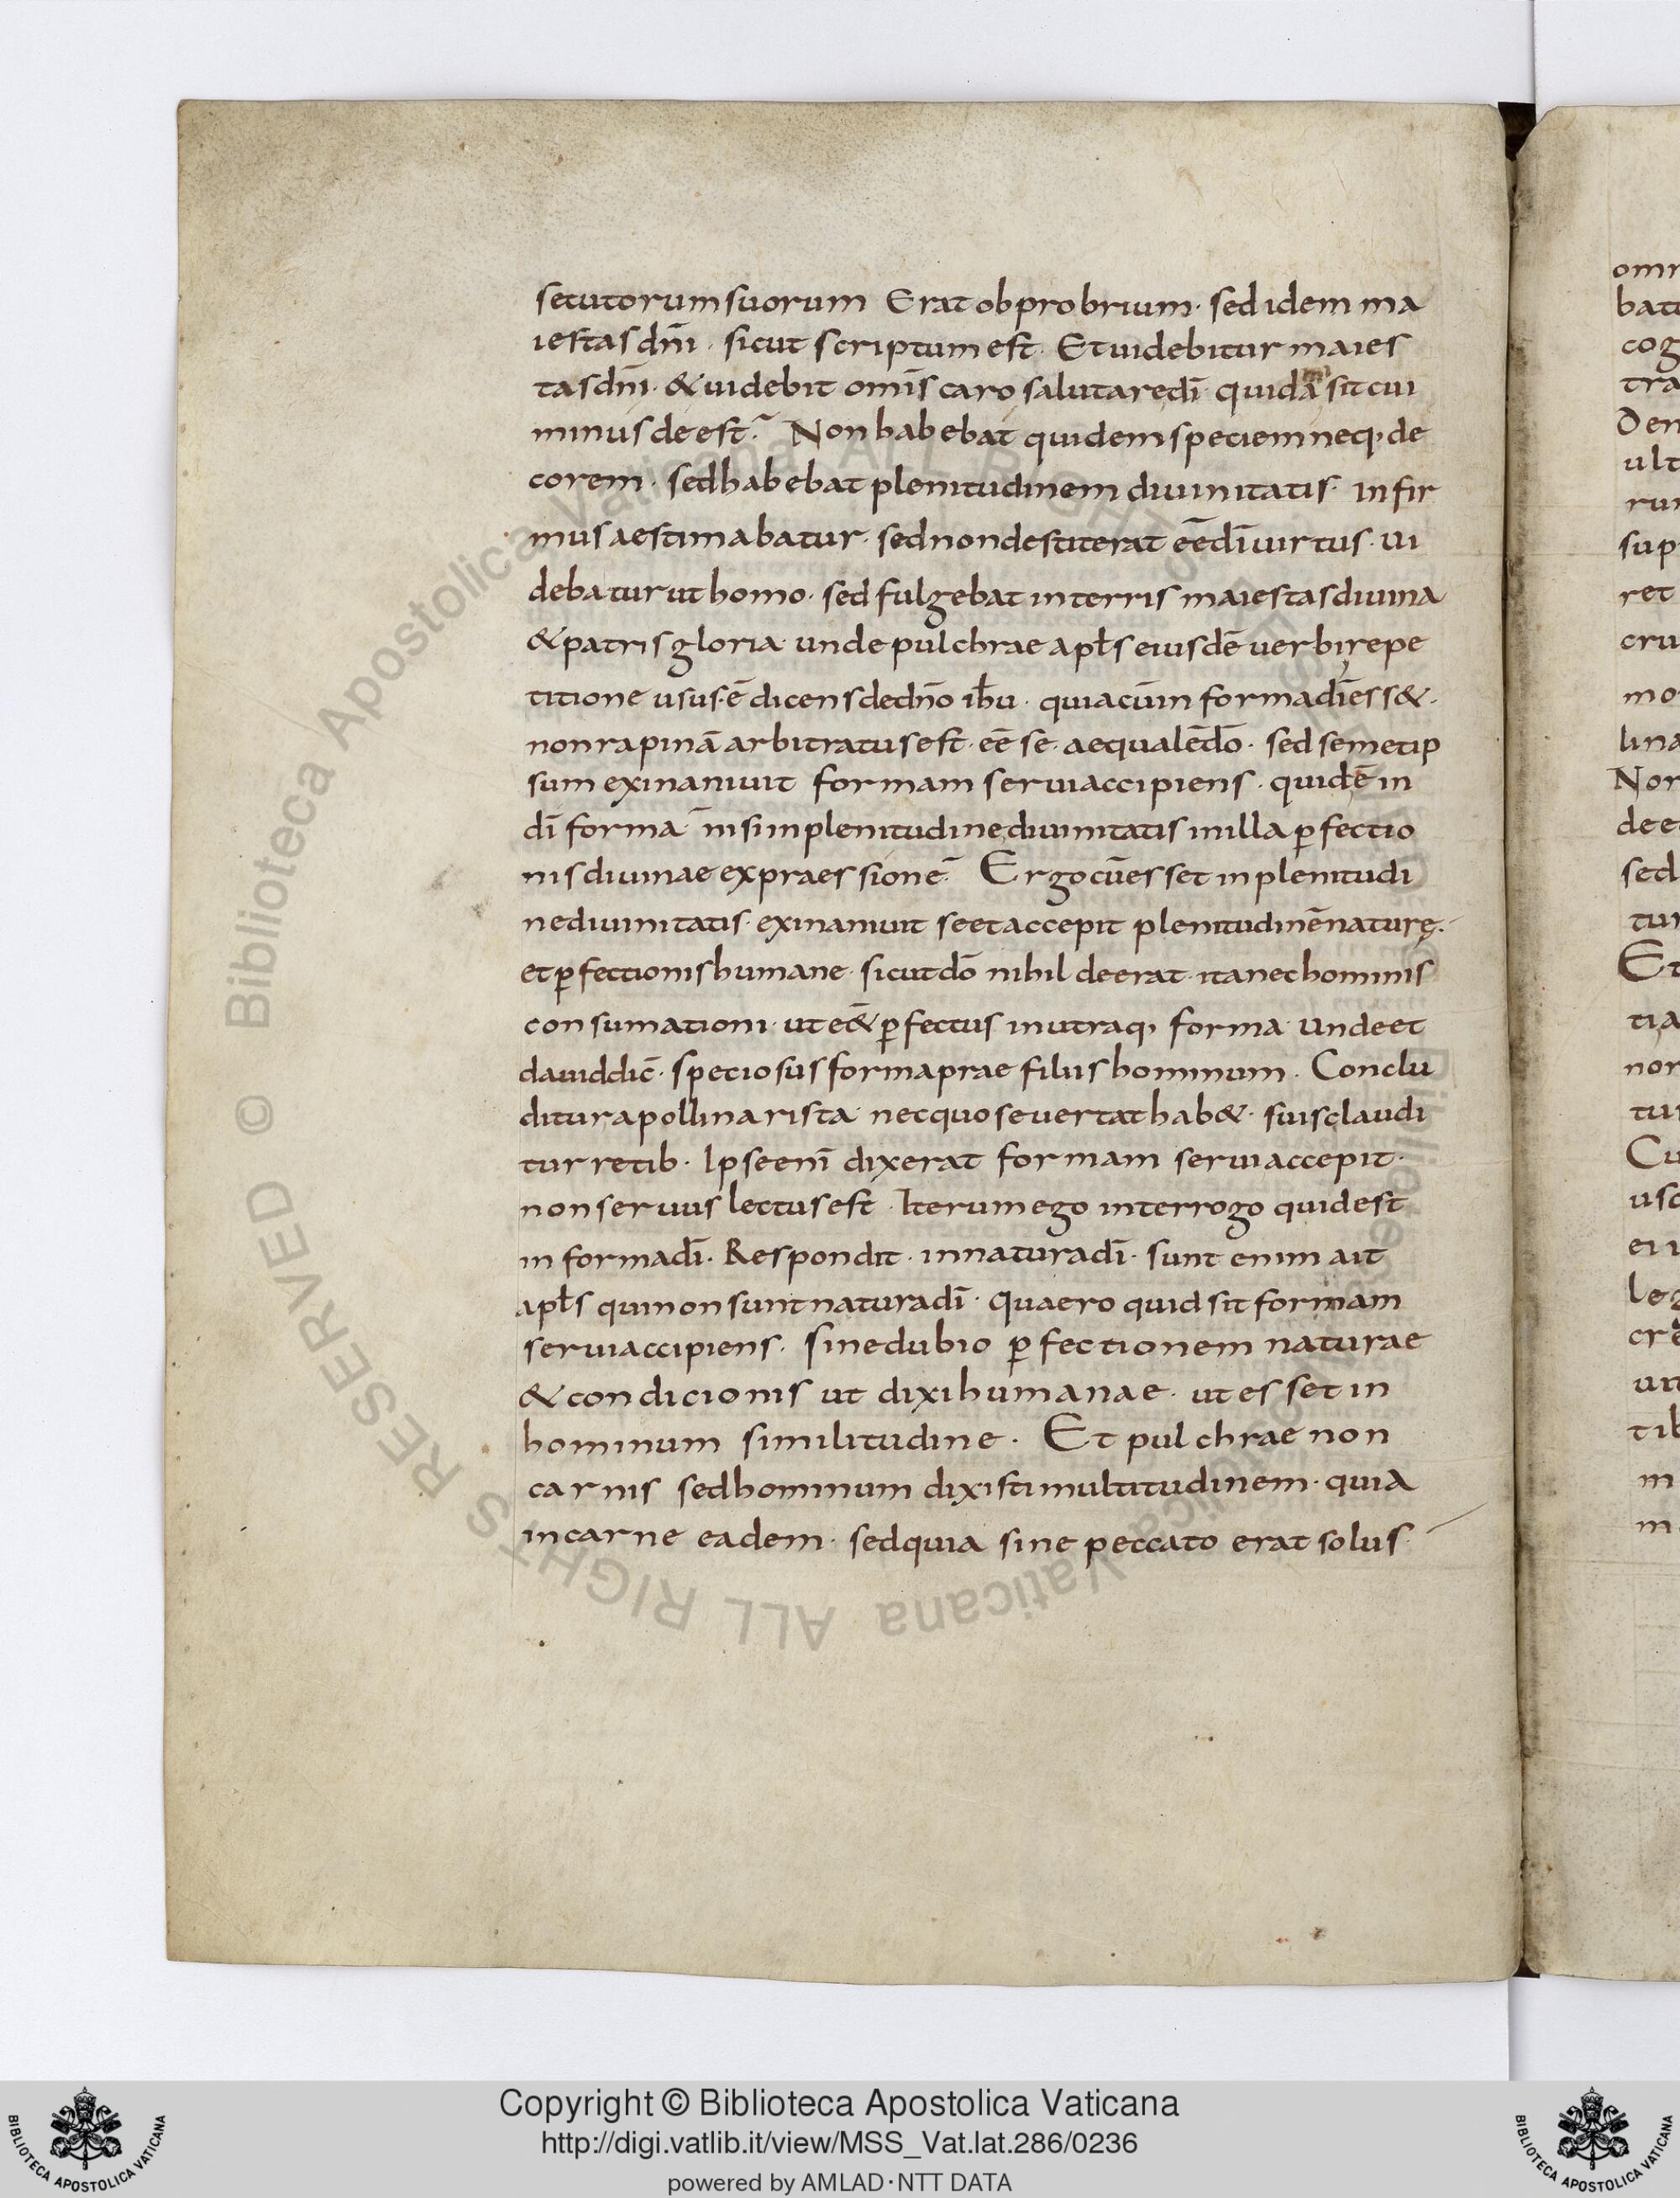 setutorum suorum Erat obprobrium· sed idem ma
iestas dn̄i · sicut scriptum est· Et uidebitur maies
tas dn̄i· & uidebit omīs caro salutare dī· quid ā sit cui
minus deest? Non habebat quidem speciem neq; de
corem· sed habebat plenitudinem diuinitatis· infir
mus aestimabatur· sed non destiterat eē dī uirtus· ui
debatur ut homo· sed fulgebat in terris maiestas diuina
& patris gloria· unde pulchrae apƚs eiusdē uerbi repe
titione usus·ē dicens de dn̄o ihu · quia cū in forma dī ess&·
non rapinā arbitratus est· eē se· aequalē dō· sed semetip
sum exinaniuit formam serui accipiens · quid ē in
dī forma nisi in plenitudine diuinitatis in illa ꝑfectio
nis diuinae expraessione Ergo cū esset in plenitudi
ne diuinitatis· exinaniuit se et accepit plenitudinē naturę·
et ꝑfectionis humane· sicut dō nihil deerat· ita nec hominis
consumationi· ut e&̄ ꝑfectus in utraq; forma· unde et
dauid dic̄· speciosus forma prae filiis hominum· Conclu
ditur apollinarista· nec quo se uertat hab&· suis claudi
tur retib· Ipse enī dixerat formam serui accepit·
non seruus lectus est · Iterum ego interrogo quid est
in forma dī· Respondit· in natura dī· sunt enim ait
apƚs qui non sunt natura dī· quaero quid sit formam
serui accipiens· sine dubio ꝑfectionem naturae
& condicionis ut dixi humanae· ut esset in
hominum similitudine· Et pulchrae non
carnis sed hominum dixisti multitudinem· quia
in carne eadem· sed quia sine peccato erat solus·
omn
batu
cog
tra
Den
ult
rur
sup
ret
cru
mo
lina
Non
dee
sed
tur
Et
tia
non
tur
Cu
usq
ei
leg
cre
un
tib
m
m
© Biblioteca Apostolica Vaticana ALL RIGHTS RESERVED
Copyright © Biblioteca Apostolica Vaticana
http://digi.vatlib.it/view/MSS_Vat.lat.286/0236
powered by AMLAD·NTT DATA
BIBLIOTECA APOSTOLICA VATICANA
BIBLIOTECA APOSTOLICA VATICANA